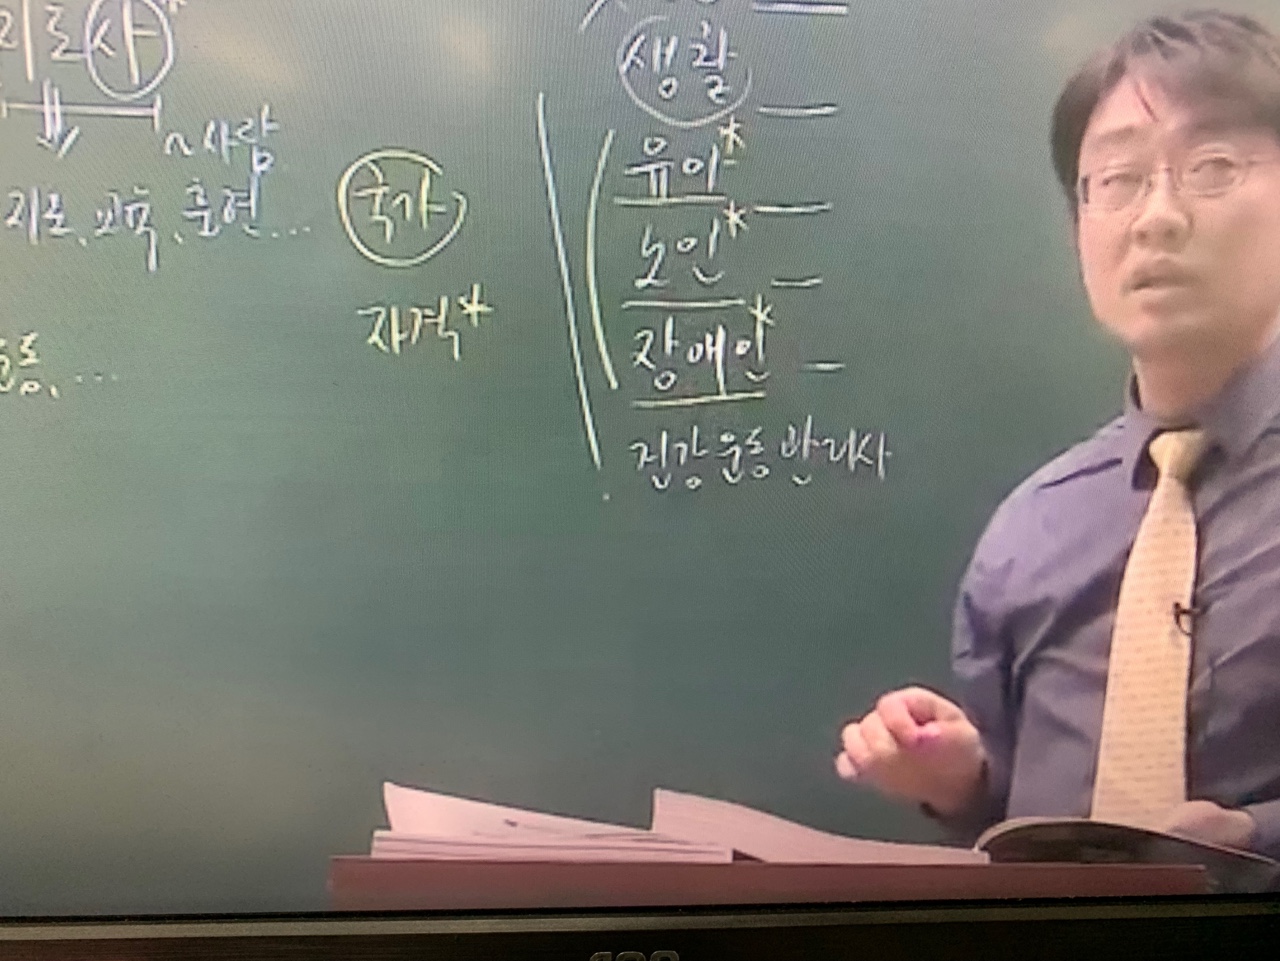 지도사*
~사람
지도, 교육, 훈련...
국가
자격*
운동, ...
생활
유아*
노인*
장애인*
건강운동관리사